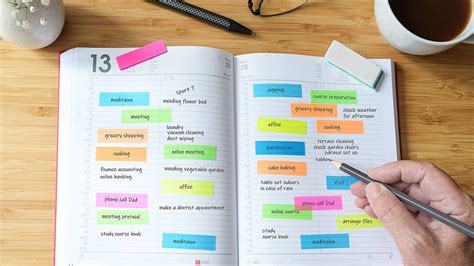 13
meditaion
sport ?
weeding flower bed
meeting
grocery shopping
laundry
vacuum cleaning
dust wiping
cooking
online meeting
finance accounting
online banking
weeding vegetable garden
office
phone call Dad
make a dentist appointment
meeting protocol
study course book
meditaion
jogging
course preparation
grocery shopping
check weather
for afternoon
office
cooking
hairdresser
terrace cleaning
check garden chairs
parasol set up
table
cake baking
table set indoors
in case of rain
Visit
phone call Dad
online course
arrange files
study
course book
meditaion